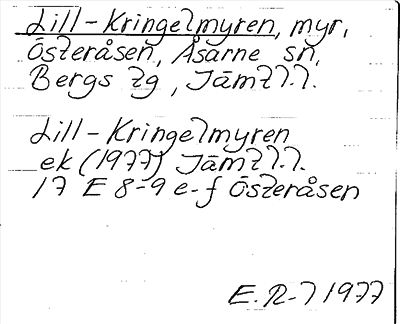 Lill-Kringelmyren, myr,
Österåsen, Åsarne sn,
Bergs tg, Jämtl.l.
Lill-Kringelmyren
ek (1977) Jämtl.l.
17 E 8-9 e-f Österåsen
E. R-l 1977